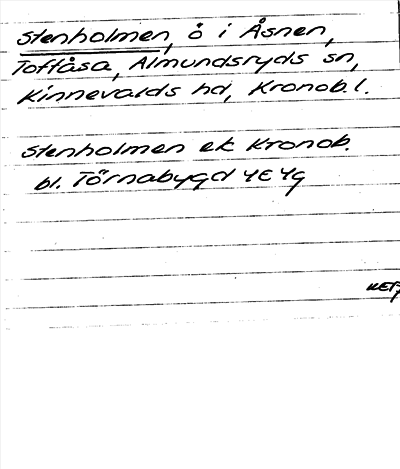 Stenholmen, ö i Åsnen,
Toftåsa, Almundsryds sn,
Kinnevalds hd, Kronob. l.
Stenholmen ek Kronob.
bl. Törnabygd 4E 4g